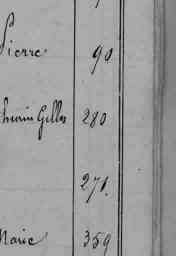 Pierre 90
thurin Gilles 280
271.
Marie 359